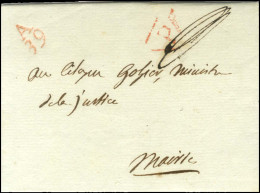 au Citoyen Gohier, Ministre
de la justice
Mairie